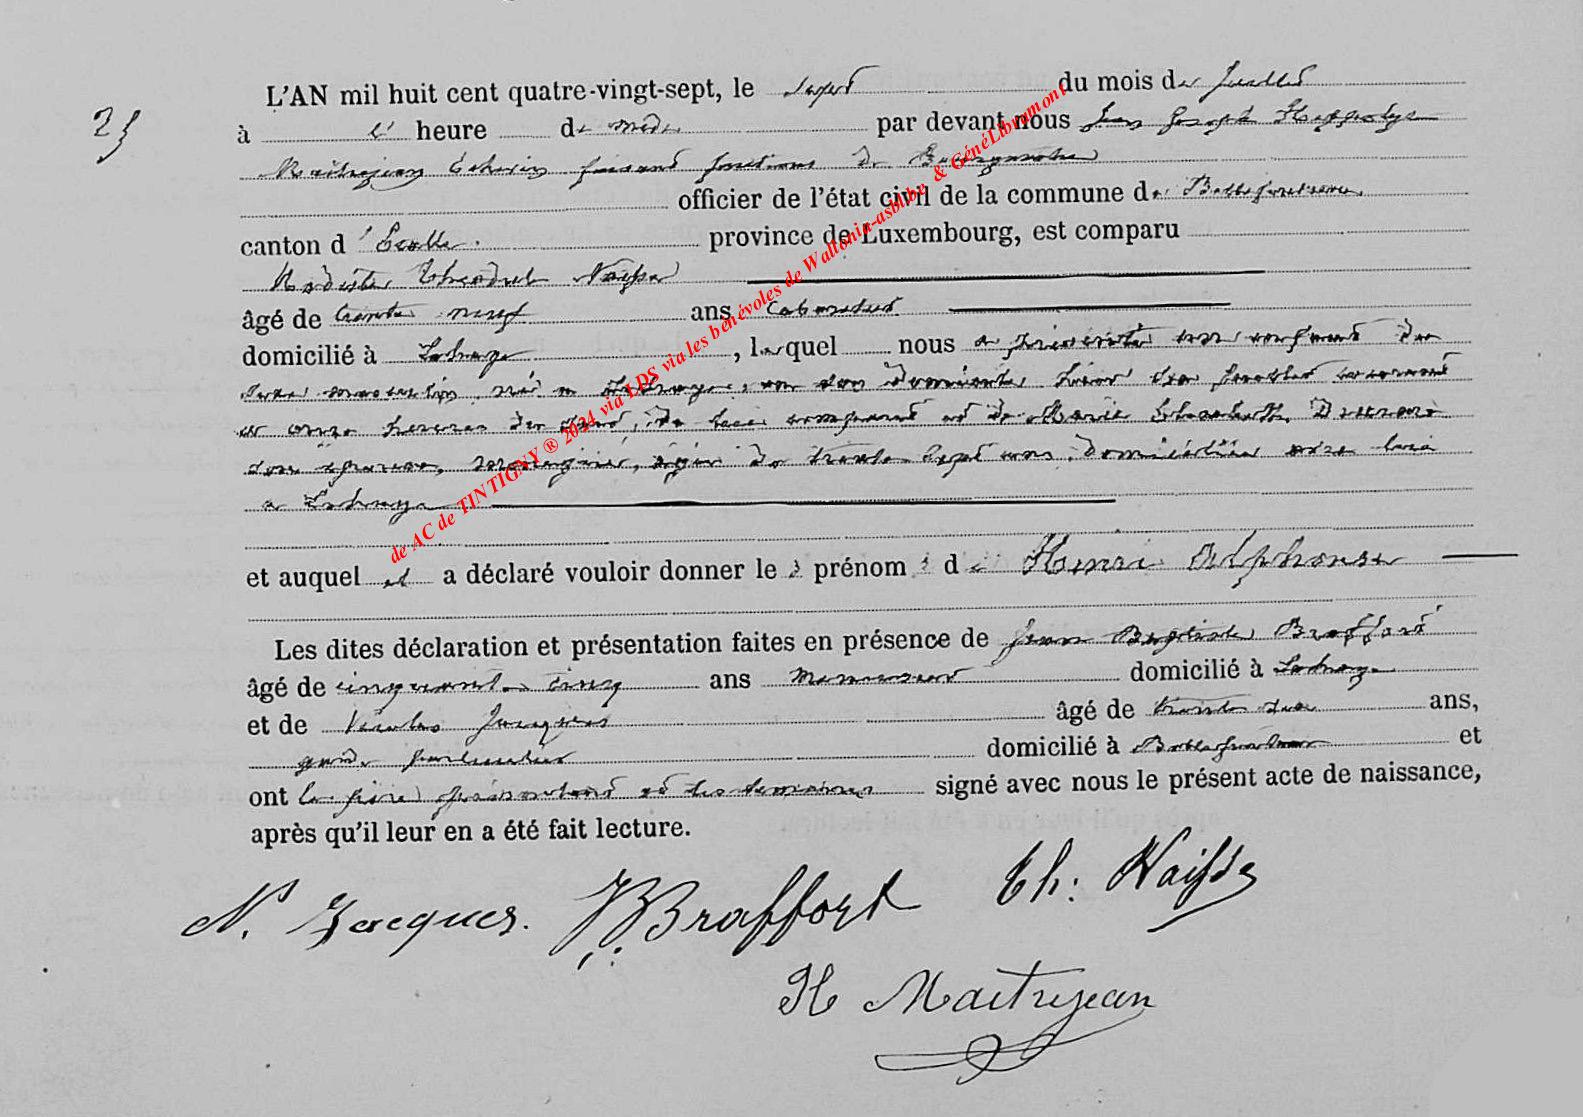 23
L'AN mil huit cent quatre-vingt-sept, le sept du mois de Juillet
à l' heure de midi par devant nous Jean Joseph Hippolyte
Maitrejean Echevin faisant fonctions de Bourgmestre
officier de l'état civil de la commune de Bellefontaine
canton d'Etalle. province de Luxembourg, est comparu
Théodule Naisse
âgé de trente neuf ans Cabaretier
domicilié à Lahage, lequel nous a présenté un enfant du
sexe masculin, né à Lahage, en son domicile, hier six Juillet courant
à onze heures du , de lui comparant et de Marie Elisabeth
son épouse, ménagère, âgée de trente sept ans, domiciliée avec lui
à Lahage
et auquel il a déclaré vouloir donner les prénoms de Henri Alphonse
Les dites déclaration et présentation faites en présence de Jean Baptiste Braffort
âgé de cinquante cinq ans Menuisier domicilié à Lahage
et de Nicolas Jacques âgé de trente deux ans,
garde particulier domicilié à Bellefontaine et
ont le père présentant et les témoins signé avec nous le présent acte de naissance,
après qu'il leur en a été fait lecture.
N. Jacques. JB Braffort Th: Naisse
H Maitrejean
de AC de TINTIGNY ® 2024 via LDS via les bénévoles de Wallonia-asblbe & GénéLibramont